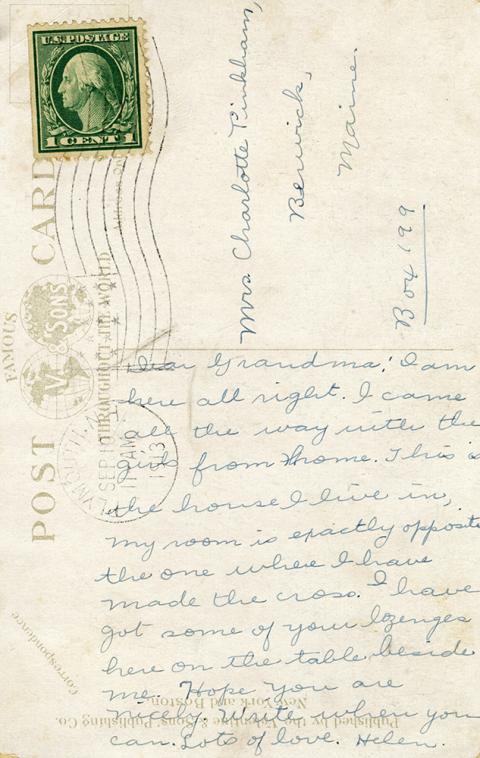 U.S. POSTAGE
1 CENT 1
Mrs. Charlotte Pinkham,
Berwick,
Maine.
Box 199
FAMOUS
POST CARD
V. & SONS
THROUGHOUT THE WORLD
SEP 10
11 AM
1913
Dear Grandma; I am
here all right. I came
all the way with the
girls from home. This is
the house I live in,
my room is exactly opposite
the one where I have
made the cross. I have
got some of your lozenges
here on the table beside
me. Hope you are
nicely. Write when you
can. Lots of love. Helen.
Correspondence
Published by the Valentine & Sons' Publishing Co.
New York and Boston.